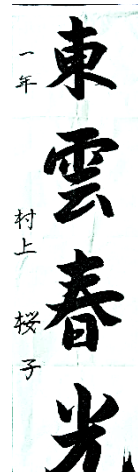 東雲春光
一年 村上 桜子